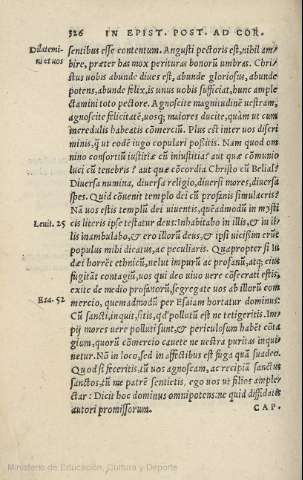 326 IN EPIST. POST. AD COR.
Dilatemini et vos
sentibus esse contentum. Angusti pectoris est, nihil ambire,
præter has mox perituras bonorũ umbras. Christus
uobis abunde diues est, abunde gloriosus, abunde
potens, abunde fœlix, is unus uobis sufficiat, hunc amplectamini
toto pectore. Agnoscite magnitudinẽ uestram,
agnoscite felicitatẽ, uosq; maiores ducite, quàm ut cum
incredulis habeatis cõmerciũ. Plus est inter uos discriminis,
q̃ ut eodẽ iugo copulari possitis. Nam quod omnino
consortiũ iustitiæ cũ iniustitia? aut quæ cõmunio
luci cũ tenebris? aut quæ cõcordia Christo cũ Belial?
Diuersa numina, diuersa religio, diuersi mores, diuersa
spes. Quid cõuenit templo dei cũ profanis simulacris?
Nã uos estis templũ dei uiuentis, quẽadmodũ in mysticis
Leuit. 25
literis ipse testatur deus: Inhabitabo in illis, & in illis
inambulabo, & ero illorũ deus, & ipsi uicissim erũt
populus mihi dicatus, ac peculiaris. Quapropter si Iudæi
horrẽt ethnicũ, uelut impurũ ac profanũ, atq; eius
fugitãt contagiũ, uos qui deo uiuo uere cõsecrati estis,
exite de medio profanorũ, segregate uos ab illorũ commercio,
Esa. 52
quemadmodũ per Esaiam hortatur dominus:
Cũ sancti, inquit, sitis, qd' pollutũ est ne tetigeritis. Impij
mores uere polluti sunt, & periculosum habẽt cõtagium,
quorũ cõmercio cauete ne uestra puritas inquinetur.
Nõ in loco, sed in affectibus est fuga quã suadeo.
Quod si feceritis, tũ uos agnoscam, ac recipiã sanctus
sanctos, tũ me patrẽ sentietis, ego uos ut filios amplectar:
Dicit hoc dominus omnipotens, ne quid diffidatis
autori promissorum. CAP.
Ministerio de Educación, Cultura y Deporte